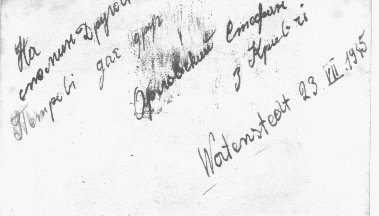 На
спомин Друго
Петрові дає друг
Орловский Стефан
з Кривчі
Watenstedt 23. VII. 1945